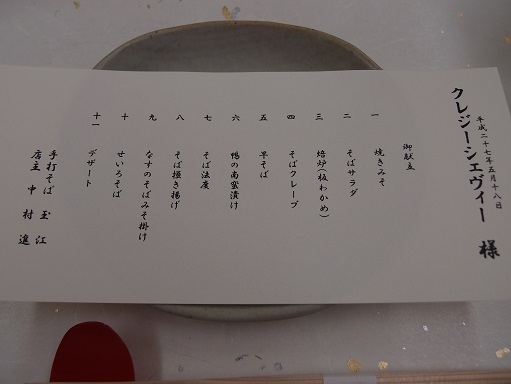 平成二十七年五月十八日
クレジーシェヴィー 様
御献立
一 焼きみそ
二 そばサラダ
三 焙炉(板わかめ)
四 そばクレープ
五 早そば
六 鴨の南蛮漬け
七 そば法度
八 そば掻き揚げ
九 なすのそばみそ掛け
十 せいろそば
十一 デザート
手打そば 玉江
店主 中村 進